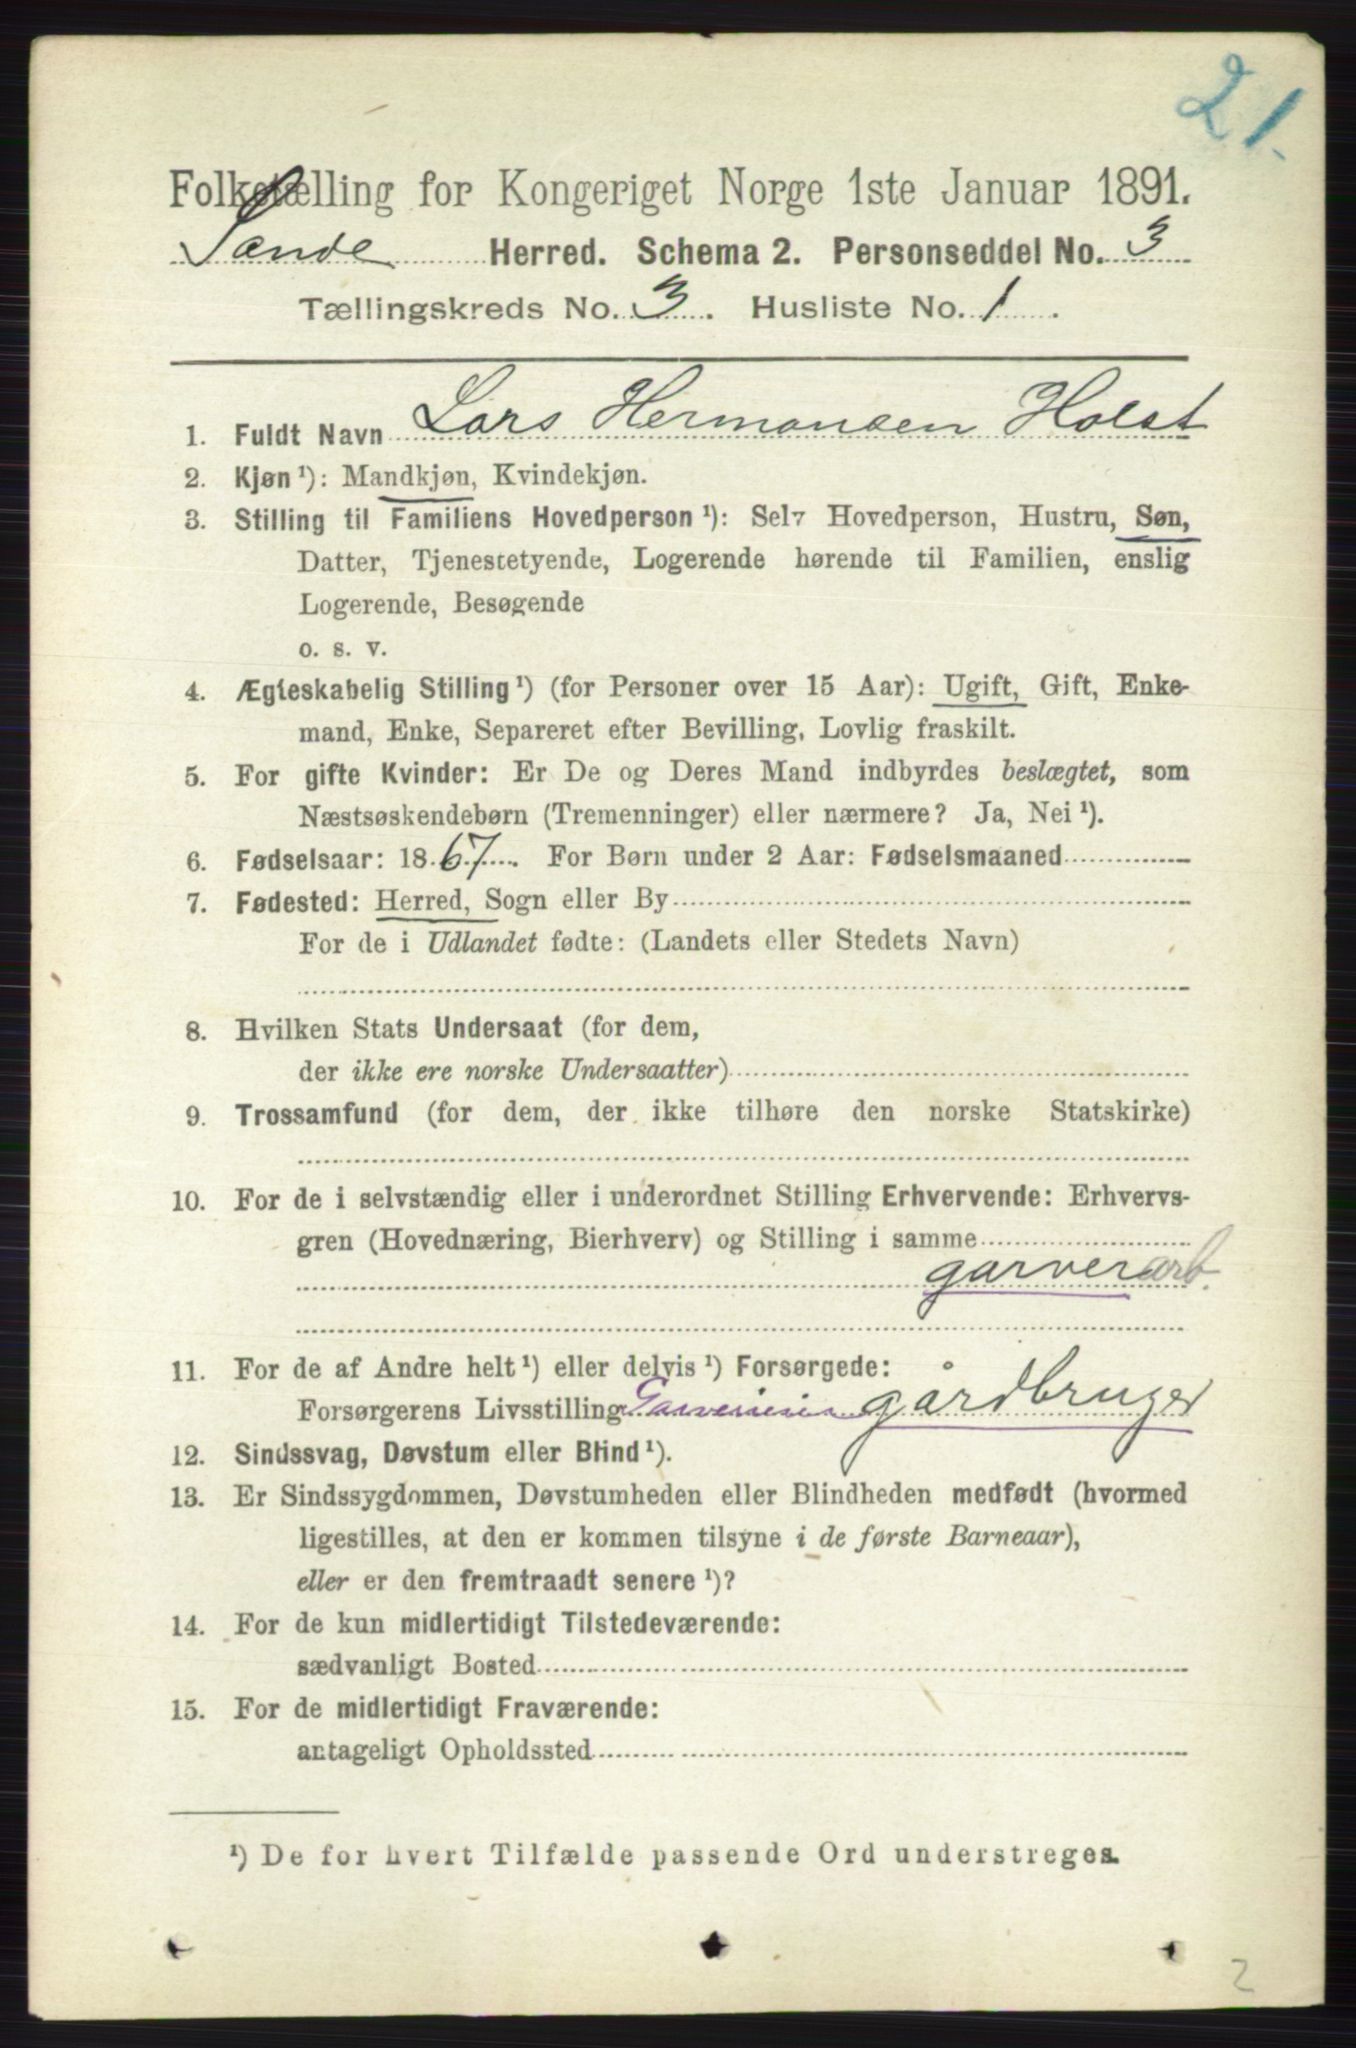 21.
Folketælling for Kongeriget Norge 1ste Januar 1891.
Sande Herred. Schema 2. Personseddel No. 3
Tællingskreds No. 3. Husliste No. 1.
1. Fuldt Navn Lars Hermansen Holst
2. Kjøn ¹): Mandkjøn, Kvindekjøn.
3. Stilling til Familiens Hovedperson ¹): Selv Hovedperson, Hustru, Søn,
Datter, Tjenestetyende, Logerende hørende til Familien, enslig
Logerende, Besøgende
o. s. v.
4. Ægteskabelig Stilling ¹) (for Personer over 15 Aar): Ugift, Gift, Enke-
mand, Enke, Separeret efter Bevilling, Lovlig fraskilt.
5. For gifte Kvinder: Er De og Deres Mand indbyrdes beslægtet, som
Næstsøskendebørn (Tremenninger) eller nærmere? Ja, Nei ¹).
6. Fødselsaar: 1867. For Børn under 2 Aar: Fødselsmaaned
7. Fødested: Herred, Sogn eller By
For de i Udlandet fødte: (Landets eller Stedets Navn)
8. Hvilken Stats Undersaat (for dem,
der ikke ere norske Undersaatter)
9. Trossamfund (for dem, der ikke tilhøre den norske Statskirke)
10. For de i selvstændig eller i underordnet Stilling Erhvervende: Erhvervs-
gren (Hovednæring, Bierhverv) og Stilling i samme
garverarb.
11. For de af Andre helt ¹) eller delvis ¹) Forsørgede:
Forsørgerens Livsstilling gårdbruger
12. Sindssvag, Døvstum eller Blind ¹).
13. Er Sindssygdommen, Døvstumheden eller Blindheden medfødt (hvormed
ligestilles, at den er kommen tilsyne i de første Barneaar),
eller er den fremtraadt senere ¹)?
14. For de kun midlertidigt Tilstedeværende:
sædvanligt Bosted
15. For de midlertidigt Fraværende:
antageligt Opholdssted
¹) De for hvert Tilfælde passende Ord understreges.
2